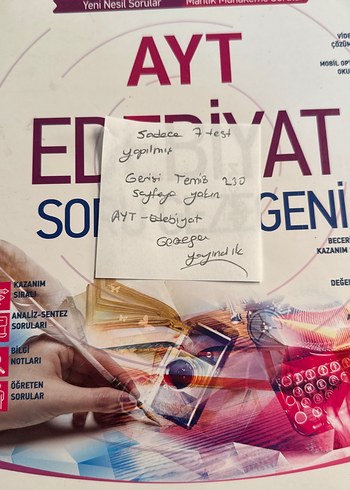 Yeni Nesil Sorular Mantık Muhakeme
AYT
VİDE
ÇÖZÜM
MOBİL OPT
OKU
EDEBİYAT
Sadece 7 test
yapılmış
Gerisi Temiz 230
sayfaya yakın
AYT - Edebiyat
yayındık
SO GENİ
BECER
KAZANIM
DEĞE
KAZANIM
SIRALI
ANALİZ-SENTEZ
SORULARI
BİLGİ
NOTLARI
ÖĞRETEN
SORULAR